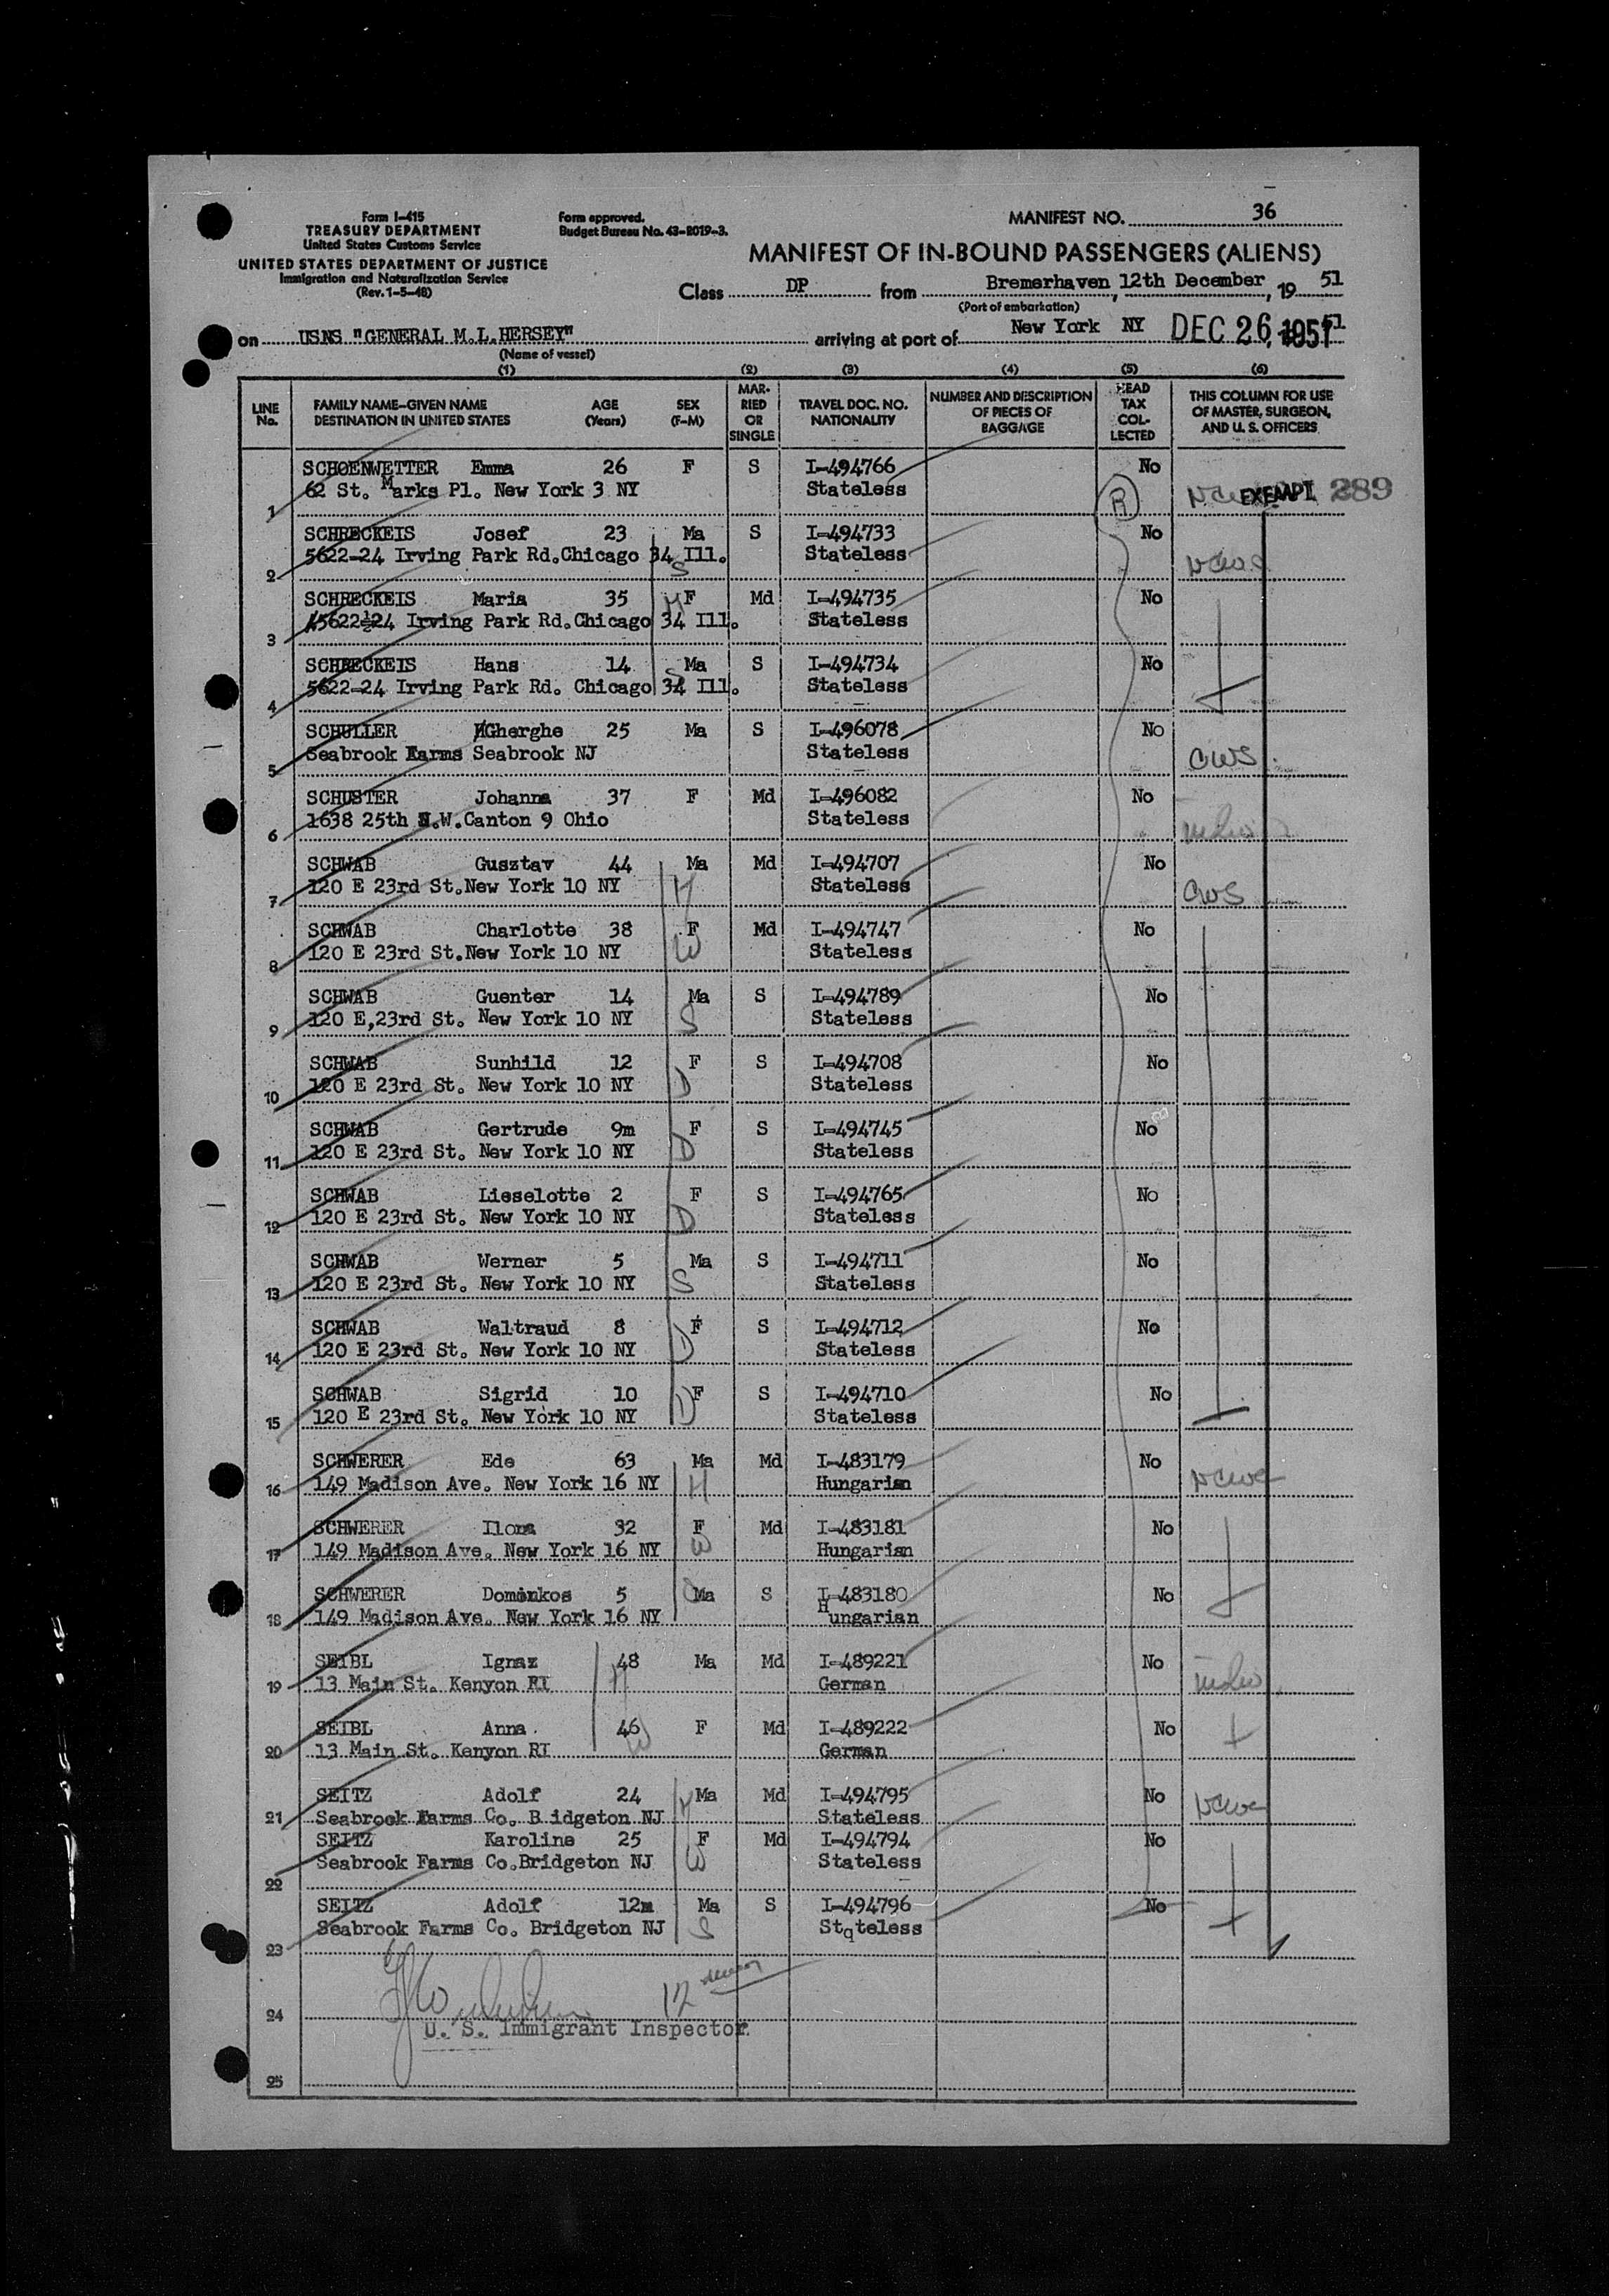 Form I-415
TREASURY DEPARTMENT
United States Customs Service
UNITED STATES DEPARTMENT OF JUSTICE
Immigration and Naturalization Service
(Rev. 1-5-48)
Form approved.
Budget Bureau No. 43-R019-3.
MANIFEST NO. 36
MANIFEST OF IN-BOUND PASSENGERS (ALIENS)
Class DP from Bremerhaven, 12th December, 19 51
(Port of embarkation)
on USNS "GENERAL M.L.HERSEY" arriving at port of New York NY DEC 26 1951
(Name of vessel)
(1) (2) (3) (4) (5) (6)
LINE No. FAMILY NAME-GIVEN NAME DESTINATION IN UNITED STATES AGE (Years) SEX (F-M) MARRIED OR SINGLE TRAVEL DOC. NO. NATIONALITY NUMBER AND DESCRIPTION OF PIECES OF BAGGAGE HEAD TAX COLLECTED THIS COLUMN FOR USE OF MASTER, SURGEON, AND U. S. OFFICERS
SCHOENWETTER Emma 26 F S I-494766 No
1 62 St. Marks Pl. New York 3 NY Stateless R NCWC EXEMPT 289
SCHRECKEIS Josef 23 Ma S I-494733 No
2 5622-24 Irving Park Rd.Chicago 34 Ill. S Stateless NCWC
SCHRECKEIS Maria 35 F Md I-494735 No
3 5622-24 Irving Park Rd.Chicago 34 Ill. Stateless
SCHRECKEIS Hans 14 Ma S I-494734 No
4 5622-24 Irving Park Rd. Chicago 34 Ill. S Stateless
SCHULLER Gherghe 25 Ma S I-496078 No
5 Seabrook Farms Seabrook NJ Stateless CWS
SCHUSTER Johanna 37 F Md I-496082 No
6 1638 25th N.W.Canton 9 Ohio Stateless
SCHWAB Gusztav 44 Ma Md I-494707 No
7 120 E 23rd St.New York 10 NY H Stateless CWS
SCHWAB Charlotte 38 F Md I-494747 No
8 120 E 23rd St.New York 10 NY W Stateless
SCHWAB Guenter 14 Ma S I-494789 No
9 120 E,23rd St. New York 10 NY S Stateless
SCHWAB Sunhild 12 F S I-494708 No
10 120 E 23rd St. New York 10 NY D Stateless
SCHWAB Gertrude 9m F S I-494745 No
11 120 E 23rd St. New York 10 NY D Stateless
SCHWAB Lieselotte 2 F S I-494765 No
12 120 E 23rd St. New York 10 NY D Stateless
SCHWAB Werner 5 Ma S I-494711 No
13 120 E 23rd St. New York 10 NY S Stateless
SCHWAB Waltraud 8 F S I-494712 No
14 120 E 23rd St. New York 10 NY D Stateless
SCHWAB Sigrid 10 F S I-494710 No
15 120 E 23rd St. New York 10 NY D Stateless
SCHWERER Ede 63 Ma Md I-483179 No
16 149 Madison Ave. New York 16 NY H Hungarian NCWC
SCHWERER Ilona 32 F Md I-483181 No
17 149 Madison Ave. New York 16 NY W Hungarian
SCHWERER Dominkos 5 Ma S I-483180 No
18 149 Madison Ave. New York 16 NY Hungarian
SEIBL Ignaz 48 Ma Md I-489221 No
19 13 Main St. Kenyon RI H German
SEIBL Anna 46 F Md I-489222 No
20 13 Main St. Kenyon RI W German
SEITZ Adolf 24 Ma Md I-494795 No
21 Seabrook Farms Co. B idgeton NJ H Stateless NCWC
SEITZ Karoline 25 F Md I-494794 No
22 Seabrook Farms Co.Bridgeton NJ W Stateless
SEITZ Adolf 12m Ma S I-494796 No
23 Seabrook Farms Co. Bridgeton NJ S Stqteless
12
24 U. S. Immigrant Inspector
25